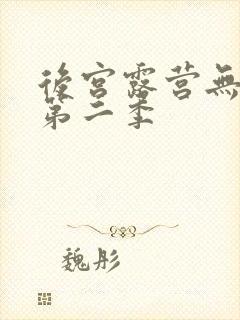 後宫露营無
第二季
魏彤